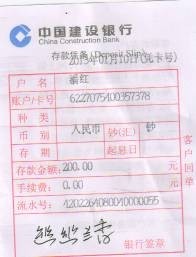 中国建设银行
China Construction Bank
存款凭条(Deposit Slip)
户名 红
账户/卡号 6227075400357378
种类
币别 人民币 钞(汇) 钞
日期 起息日
存款金额: 200.00 元
手续费: 0.00 元
流水号: 4202264080040000055
银行签章
客户回单